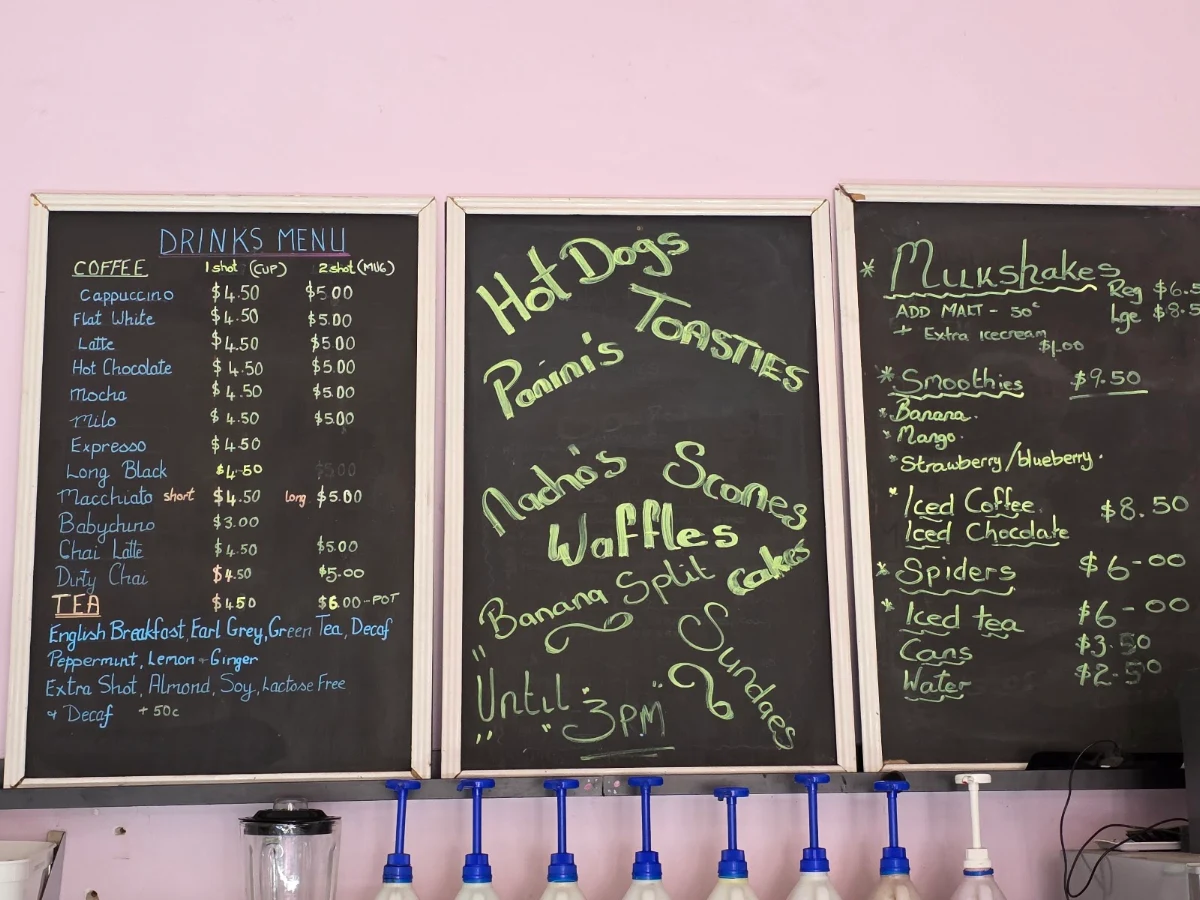 DRINKS MENU
COFFEE 1 shot (CUP) 2 shot (MUG)
Cappuccino $4.50 $5.00
Flat White $4.50 $5.00
Latte $4.50 $5.00
Hot Chocolate $4.50 $5.00
Mocha $4.50 $5.00
Milo $4.50 $5.00
Expresso $4.50
Long Black $4.50 $5.00
Macchiato short $4.50 long $5.00
Babychino $3.00
Chai Latte $4.50 $5.00
Dirty Chai $4.50 $5.00
TEA $4.50 $6.00-POT
English Breakfast, Earl Grey, Green Tea, Decaf
Peppermint, Lemon + Ginger
Extra Shot, Almond, Soy, Lactose Free
+ Decaf +50c
Hot Dogs
TOASTIES
Panini's
Nacho's
Scones
Waffles
Cakes
Banana Split
Sundaes
"Until "3PM"
* Milkshakes
Reg $6.5
ADD MALT - 50c Lge $8.5
+ Extra icecream $1.00
* Smoothies $9.50
* Banana.
* Mango.
* Strawberry/blueberry.
* Iced Coffee $8.50
Iced Chocolate
* Spiders $6-00
* Iced tea $6-00
Cans $3.50
Water $2.50